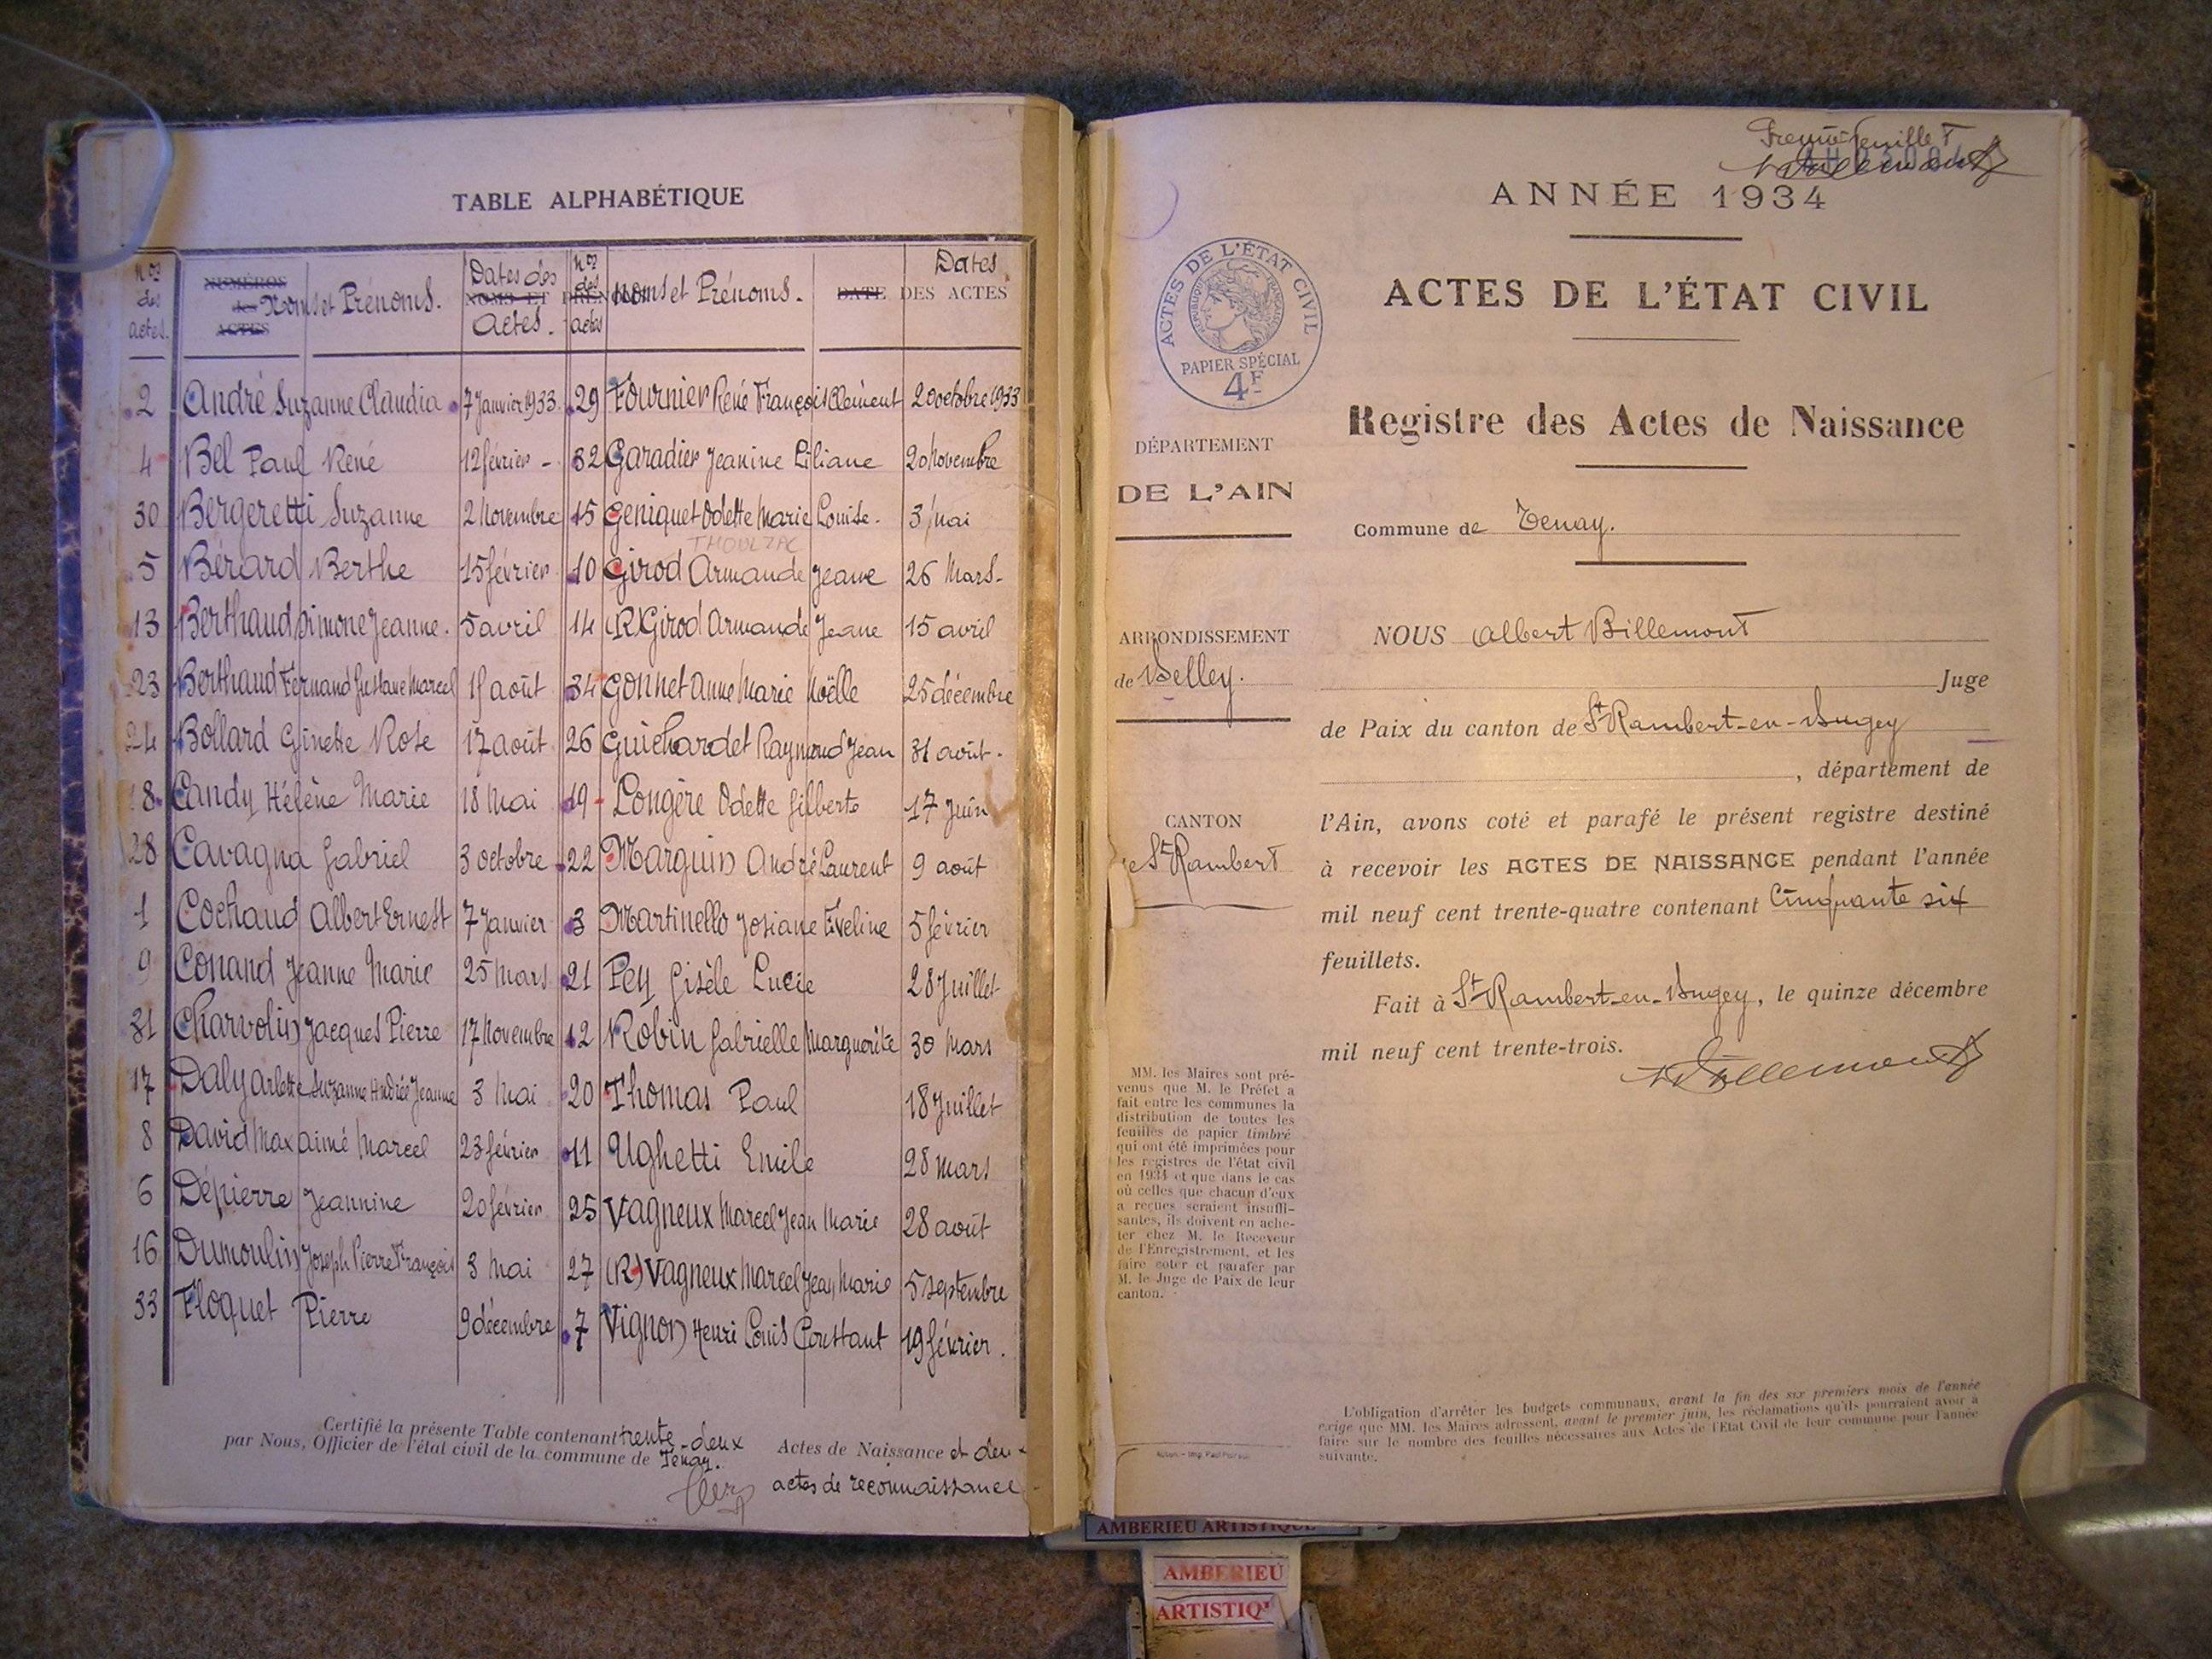 TABLE ALPHABÉTIQUE
Nos des actes. NUMÉROS des ACTES Noms et Prénoms. Dates des NOMS ET PRÉNOMS Actes. Nos des actes Noms et Prénoms. DATE DES ACTES Dates
2 André Suzanne Claudia 7 Janvier 1933. 29 Fournier René François Clément 20 octobre 1933
4 Bel Paul René 12 février - 32 Garadier Jeanine Liliane 20 Novembre
30 Bergeretti Suzanne 2 Novembre 15 Geniquet Odette Marie Louise. 3 Mai
THOULZAC
5 Bérard Berthe 15 février 10 Girod Armande Jeane 26 Mars-
13 Berthaud Simone Jeanne. 5 avril 14 (R) Girod Armande Jeane 15 avril
23 Berthaud Fernand Gustave Marcel août 34 Gonnet Anne Marie Noëlle 25 décembre
24 Bollard Ginette Rose 17 août 26 Guichardet Raymond Jean 31 août.
Candy Hélène Marie 18 Mai 19 Longère Odette Gilberte 17 Juin
28 Cavagna Gabriel 3 octobre 22 Marguin André Laurent 9 août
1 Cochaud Albert Ernest 7 Janvier 3 Martinello Josiane Eveline 5 février
9 Conand Jeanne Marie 25 Mars 21 Pey Gisèle Lucie 28 Juillet
31 Charvolin Jacques Pierre 17 Novembre 12 Robin Gabrielle Marguerite 30 Mars
17 Daly Arlette Suzanne Andrée Jeanne 3 Mai 20 Thomas Paul 18 Juillet
8 David Max aimé Marcel 23 février 11 Ughetti Emile 28 mars
6 Dépierre Jeannine 20 février 25 Vagneux Marcel Jean Marie 28 août
16 Dumoulin Joseph Pierre François 3 Mai 27 (R) Vagneux Marcel Jean Marie 5 septembre
33 Floquet Pierre 9 décembre 7 Vignon Henri Louis Constant 19 février.
Certifié la présente Table contenant trente-deux Actes de Naissance et deux
par Nous, Officier de l'état civil de la commune de Tenay. actes de reconnaissance
Première feuille
Billemont
ANNÉE 1934
ACTES DE L'ÉTAT CIVIL
RÉPUBLIQUE FRANÇAISE
PAPIER SPÉCIAL
4F
ACTES DE L'ÉTAT CIVIL
Registre des Actes de Naissance
DÉPARTEMENT
DE L'AIN
Commune de Tenay.
ARRONDISSEMENT
de Belley.
CANTON
de St Rambert
NOUS Albert Billemont
Juge
de Paix du canton de St Rambert-en-Bugey
, département de
l'Ain, avons coté et parafé le présent registre destiné
à recevoir les ACTES DE NAISSANCE pendant l'année
mil neuf cent trente-quatre contenant Cinquante six
feuillets.
Fait à St Rambert-en-Bugey, le quinze décembre
mil neuf cent trente-trois.
Billemont
MM. les Maires sont pré-
venus que M. le Préfet a
fait entre les communes la
distribution de toutes les
feuilles de papier timbré
qui ont été imprimées pour
les registres de l'état civil
en 1934 et que dans le cas
où celles que chacun d'eux
a reçues seraient insuffi-
santes, ils doivent en ache-
ter chez M. le Receveur
de l'Enregistrement, et les
faire coter et parafer par
M. le Juge de Paix de leur
canton.
L'obligation d'arrêter les budgets communaux, avant la fin des six premiers mois de l'année
exige que MM. les Maires adressent, avant le premier juin, les réclamations qu'ils pourraient avoir à
faire sur le nombre des feuilles nécessaires aux Actes de l'Etat Civil de leur commune pour l'année
suivante.
AMBERIEU ARTISTIQUE
AMBERIEU
ARTISTIQ